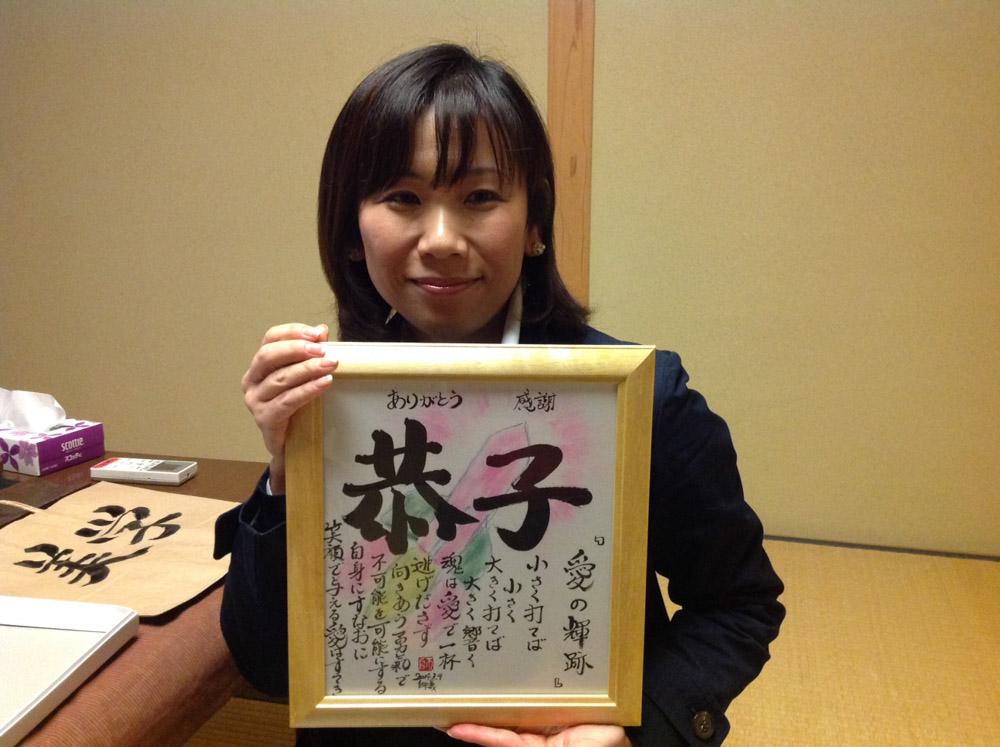 ありがとう 感謝
恭子
『愛の輝跡』
小さく打てば
小さく
大きく打てば
大きく響く
魂は愛で一杯
逃げださず
向きあう勇氣で
不可能を可能にする
自身にすなおに
笑顔で与える愛はすてき
scottie
スコッティ